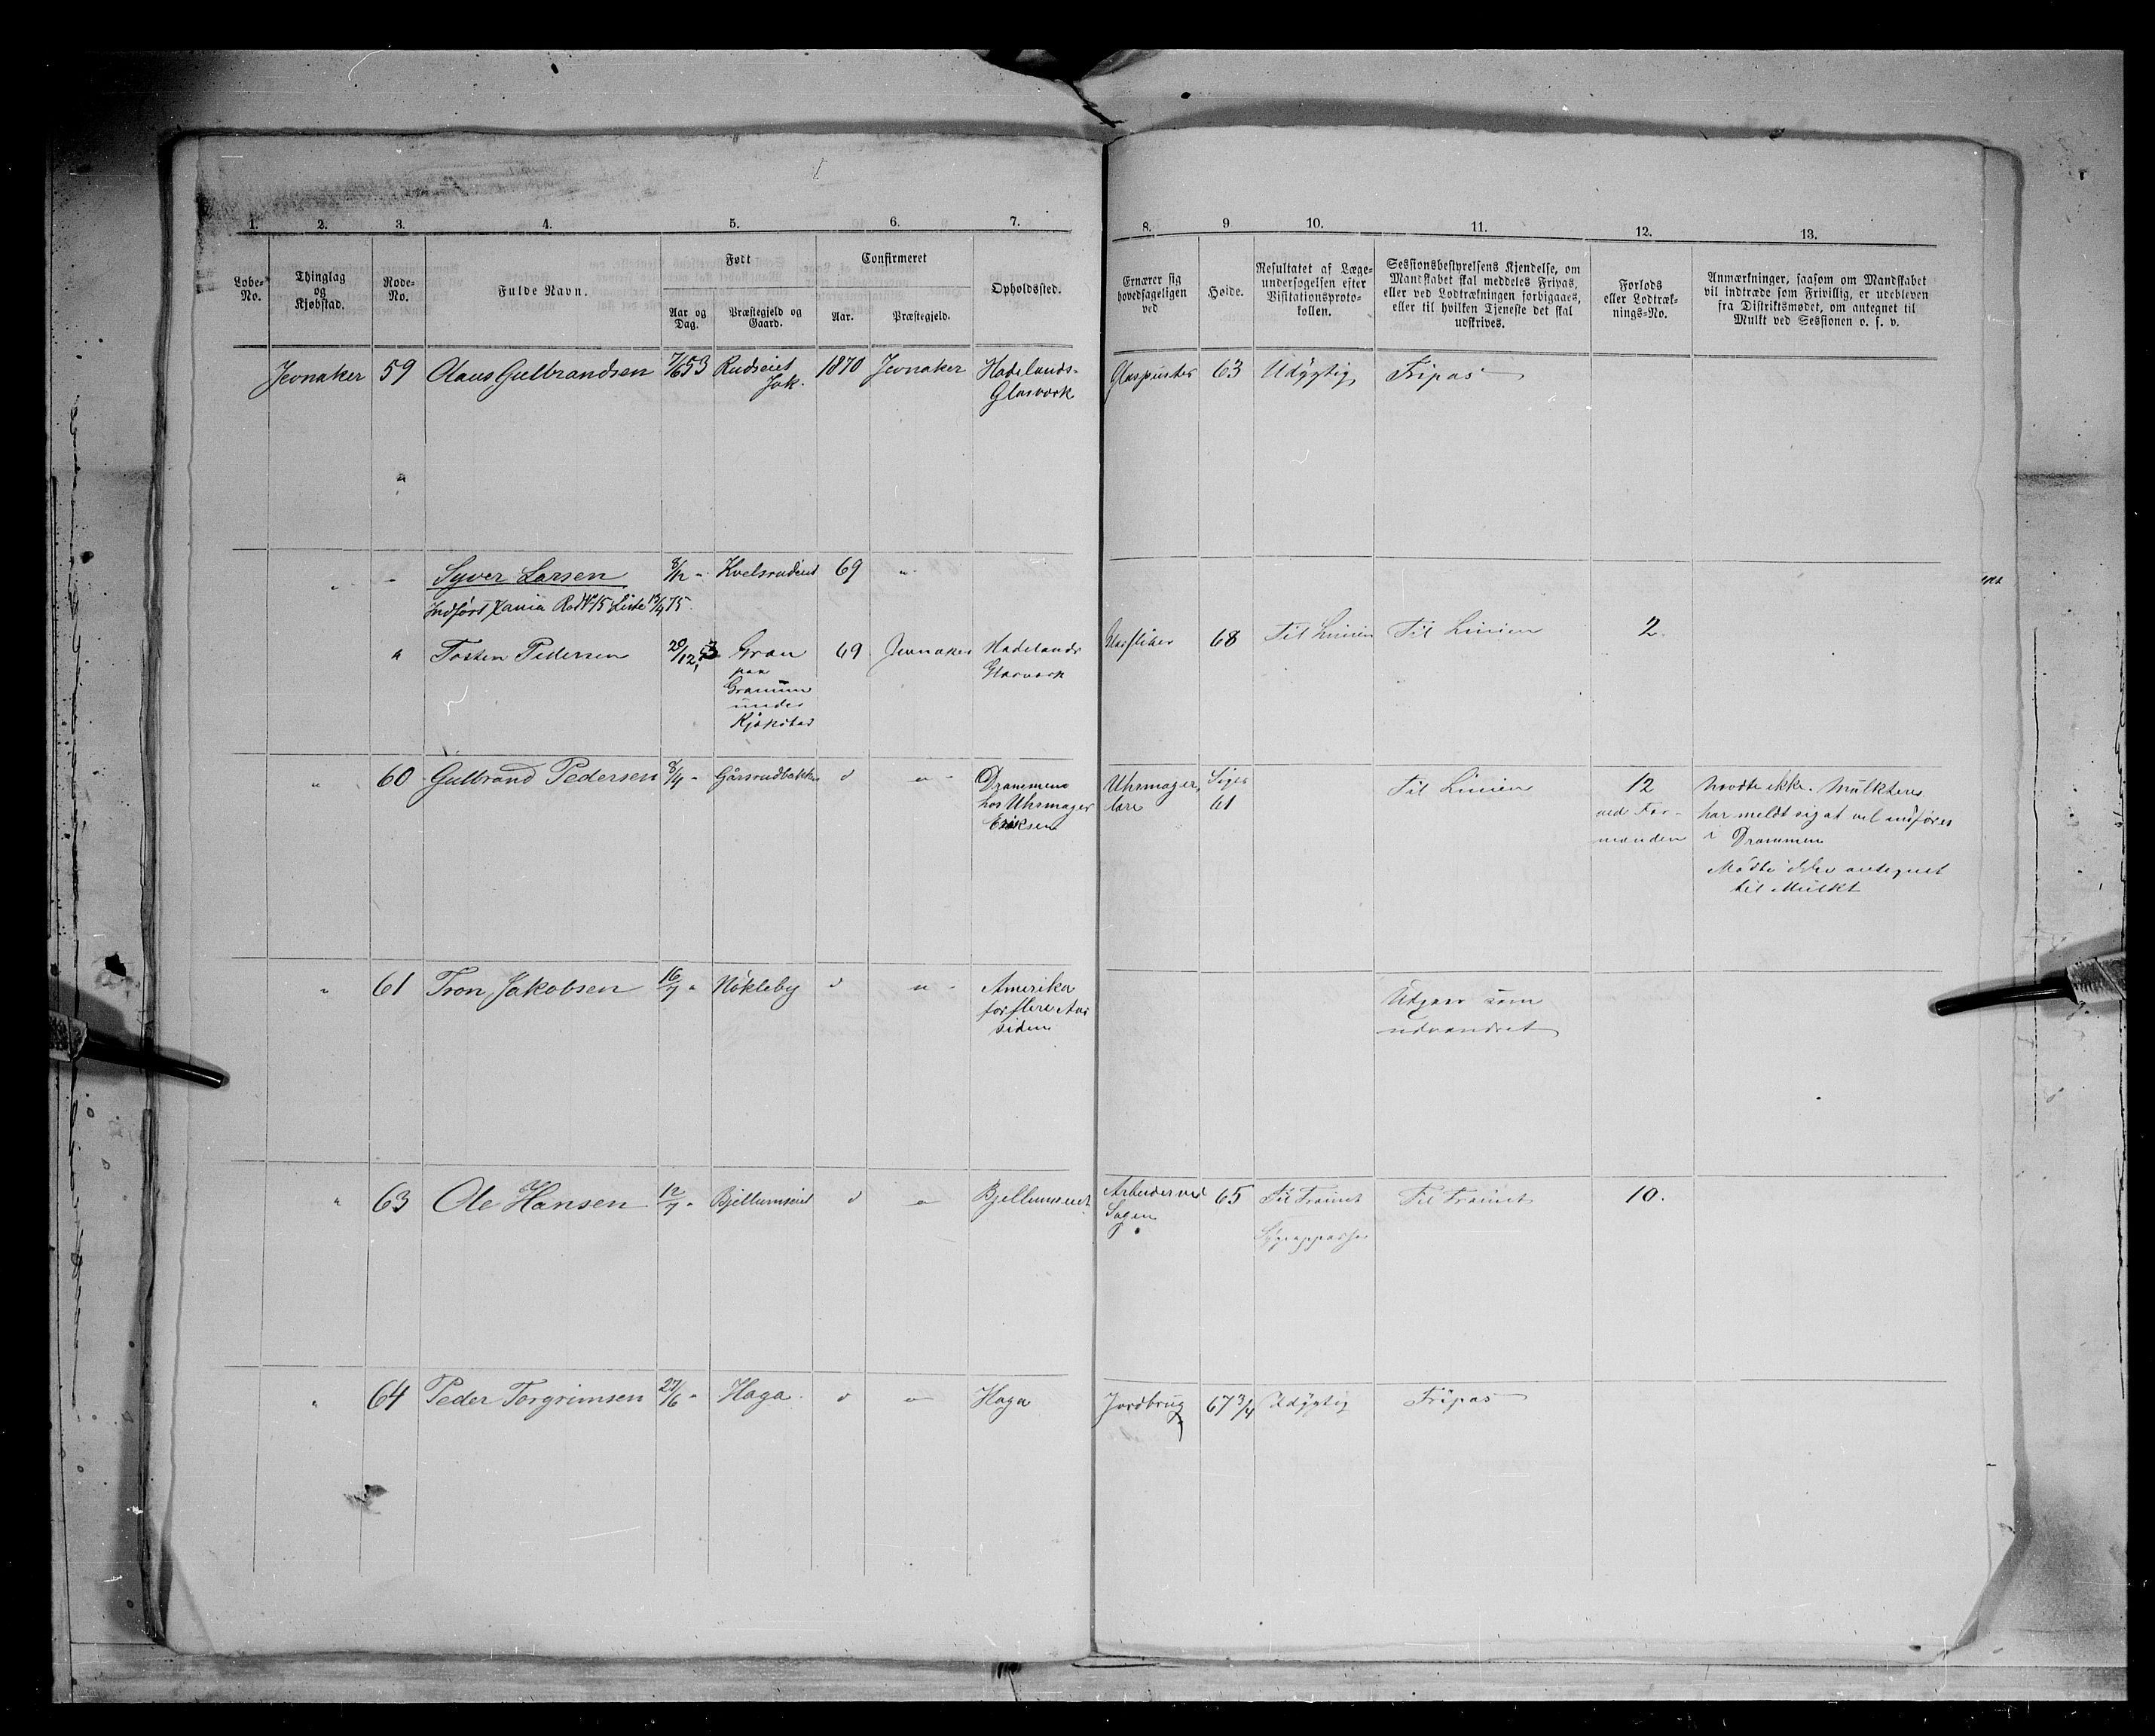 1. 2. 3. 4. 5. 6. 7. 8. 9 10. 11. 12. 13.
Løbe-No.
Thinglag og Kjøbstad.
Rode-No.
Fulde Navn.
Født
Aar og Dag.
Præstegjeld og Gaard.
Confirmeret
Aar.
Præstegjeld.
Opholdssted.
Ernærer sig hovedsageligen ved
Høide.
Resultatet af Læge-undersøgelsen efter Visitationsproto-kollen.
Sessionsbestyrelsens Kjendelse, om Mandskabet skal meddeles Fripas, eller ved Lodtrækningen forbigaaes, eller til hvilken Tjeneste det skal udskrives.
Forlods eller Lodtræk-nings-No.
Anmærkninger, saasom om Mandskabet vil indtræde som Frivillig, er udebleven fra Distriktsmødet, om antegnet til Mulkt ved Sessionen o. s. v.
Jevnaker 59 Olaus Gulbrandsen 7/6 53 Rudseiet 1870 Jevnaker Hadelands- Glaspuster 63 Udygtig Fripas
Jvk. Glasværk
"
" - Syver Larsen 8/12 - Kvelsrudeiet 69 "
Indført Xania Rode No 15 Liste 13/4 75.
" Tosten Pedersen 20/12 53 Gran 69 Jevnaker Hadelands Glassliber 68 Til Linien Til Linien 2.
paa Glasværk
Granum
under
Kjækstad
" 60 Gulbrand Pedersen 8/4 - Gårsrudbakken d " - Drammen Uhrmager Siger Til Linien 12 Mødte ikke. Mulkteres
hos Uhrmager lære 61 ved For- har meldt sig at vel indføres
Eriksen manden i Drammen
Mødte ikke antegnet
til Mulkt
" 61 Tron Jakobsen 16/7 " Nökleby d " - Amerika Udgaar som
for flere Aar udvandret
siden
" 63 Ole Hansen 12/7 - Bjellumseiet d " Bjellumseiet Arbeider ved 65 Til Trainet Til Trainet 10.
Sagen Sygepasser
" 64 Peder Torgrimsen 27/6 - Haga d " Haga Jordbrug 67 3/4 Udygtig Fripas